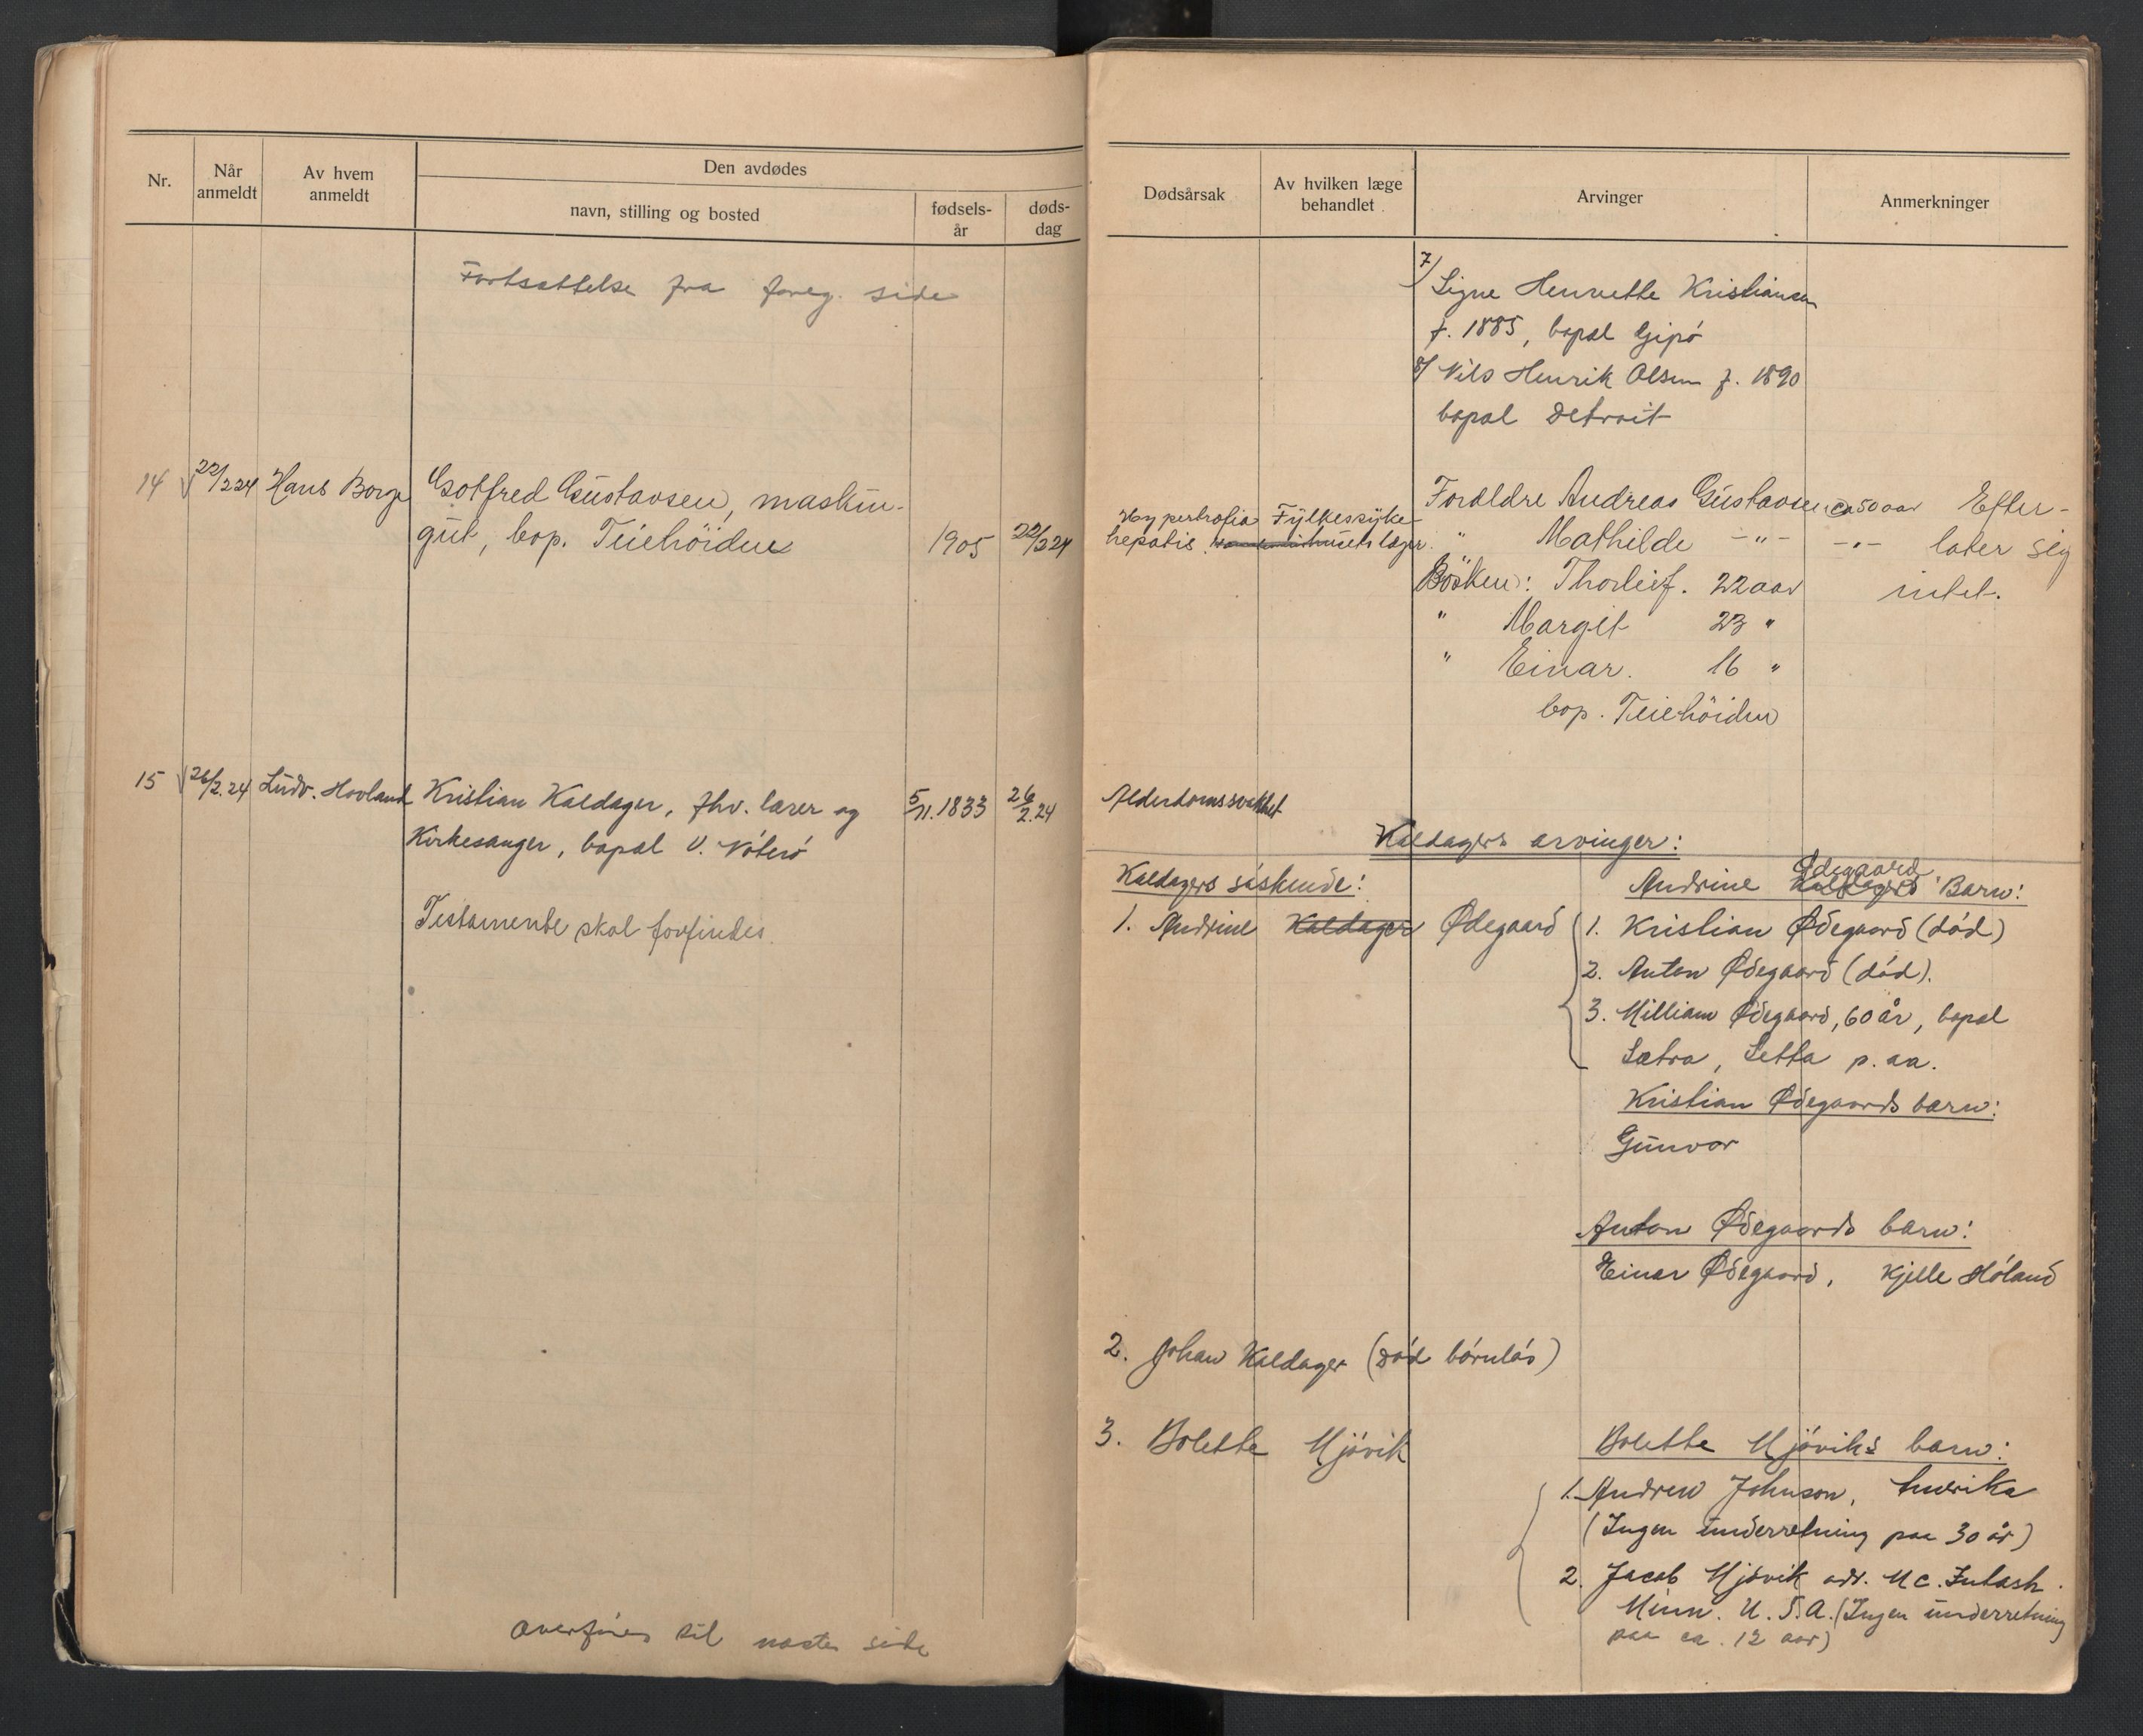 Nr.
Når
anmeldt
Av hvem
anmeldt
Den avdødes
navn, stilling og bosted
fødsels-
år
døds-
dag
Fortsettelse fra foreg. side
14 22/2 24 Hans Borge Gotfred Gustavsen, maskin-
gut, bop. Teiehöiden 1905 22/2 24
15 26/2.24 Ludv. Hovland Kristian Kaldager, fhv. lærer og 5/11.1833 26/2.24
Kirkesanger, bopæl V. Nöterö
Testamente skal forfindes.
Overføres til næste side
Dødsårsak
Av hvilken læge
behandlet
Arvinger
Anmerkninger
7/ Signe Henriette Kristiansen
f. 1885, bopæl Gipö
8/ Nils Henrik Olsen f. 1890
bopæl Detroit
Forældre Andreas Gustavsen ca 50 aar Efter-
Hypertrofia Fylkessyke-
hepatis. husets læger. " Mathilde -"- -"- later sig
Sösken: Thorleif. 22 aar intet.
" Margit 23 "
" Einar. 16 "
bop. Teiehöiden
Alderdomssvakhet
Kaldagers arvinger:
Kaldagers söskende:
Andrine Kaldagers Ødegaard Barn:
1. Andrine Kaldager Ødegaard
1. Kristian Ødegaard (död)
2. Anton Ødegaard (död).
3. Milliam Ødegaard, 60 år, bopæl
Sætra, Setta p. aa.
Kristian Ødegaards barn:
Gunvor
Anton Ødegaards barn:
Einar Ødegaard, Kjelle Höland
2. Johan Kaldager (död barnlös)
3. Bolette Mjövik
Bolette Mjöviks barn:
1. Andrew Johnson, Amerika
(Ingen underretning paa 30 år)
2. Jacob Mjövik adr. Mc. Intosh.
Minn. U. S. A. (Ingen underretning
paa ca. 12 aar)